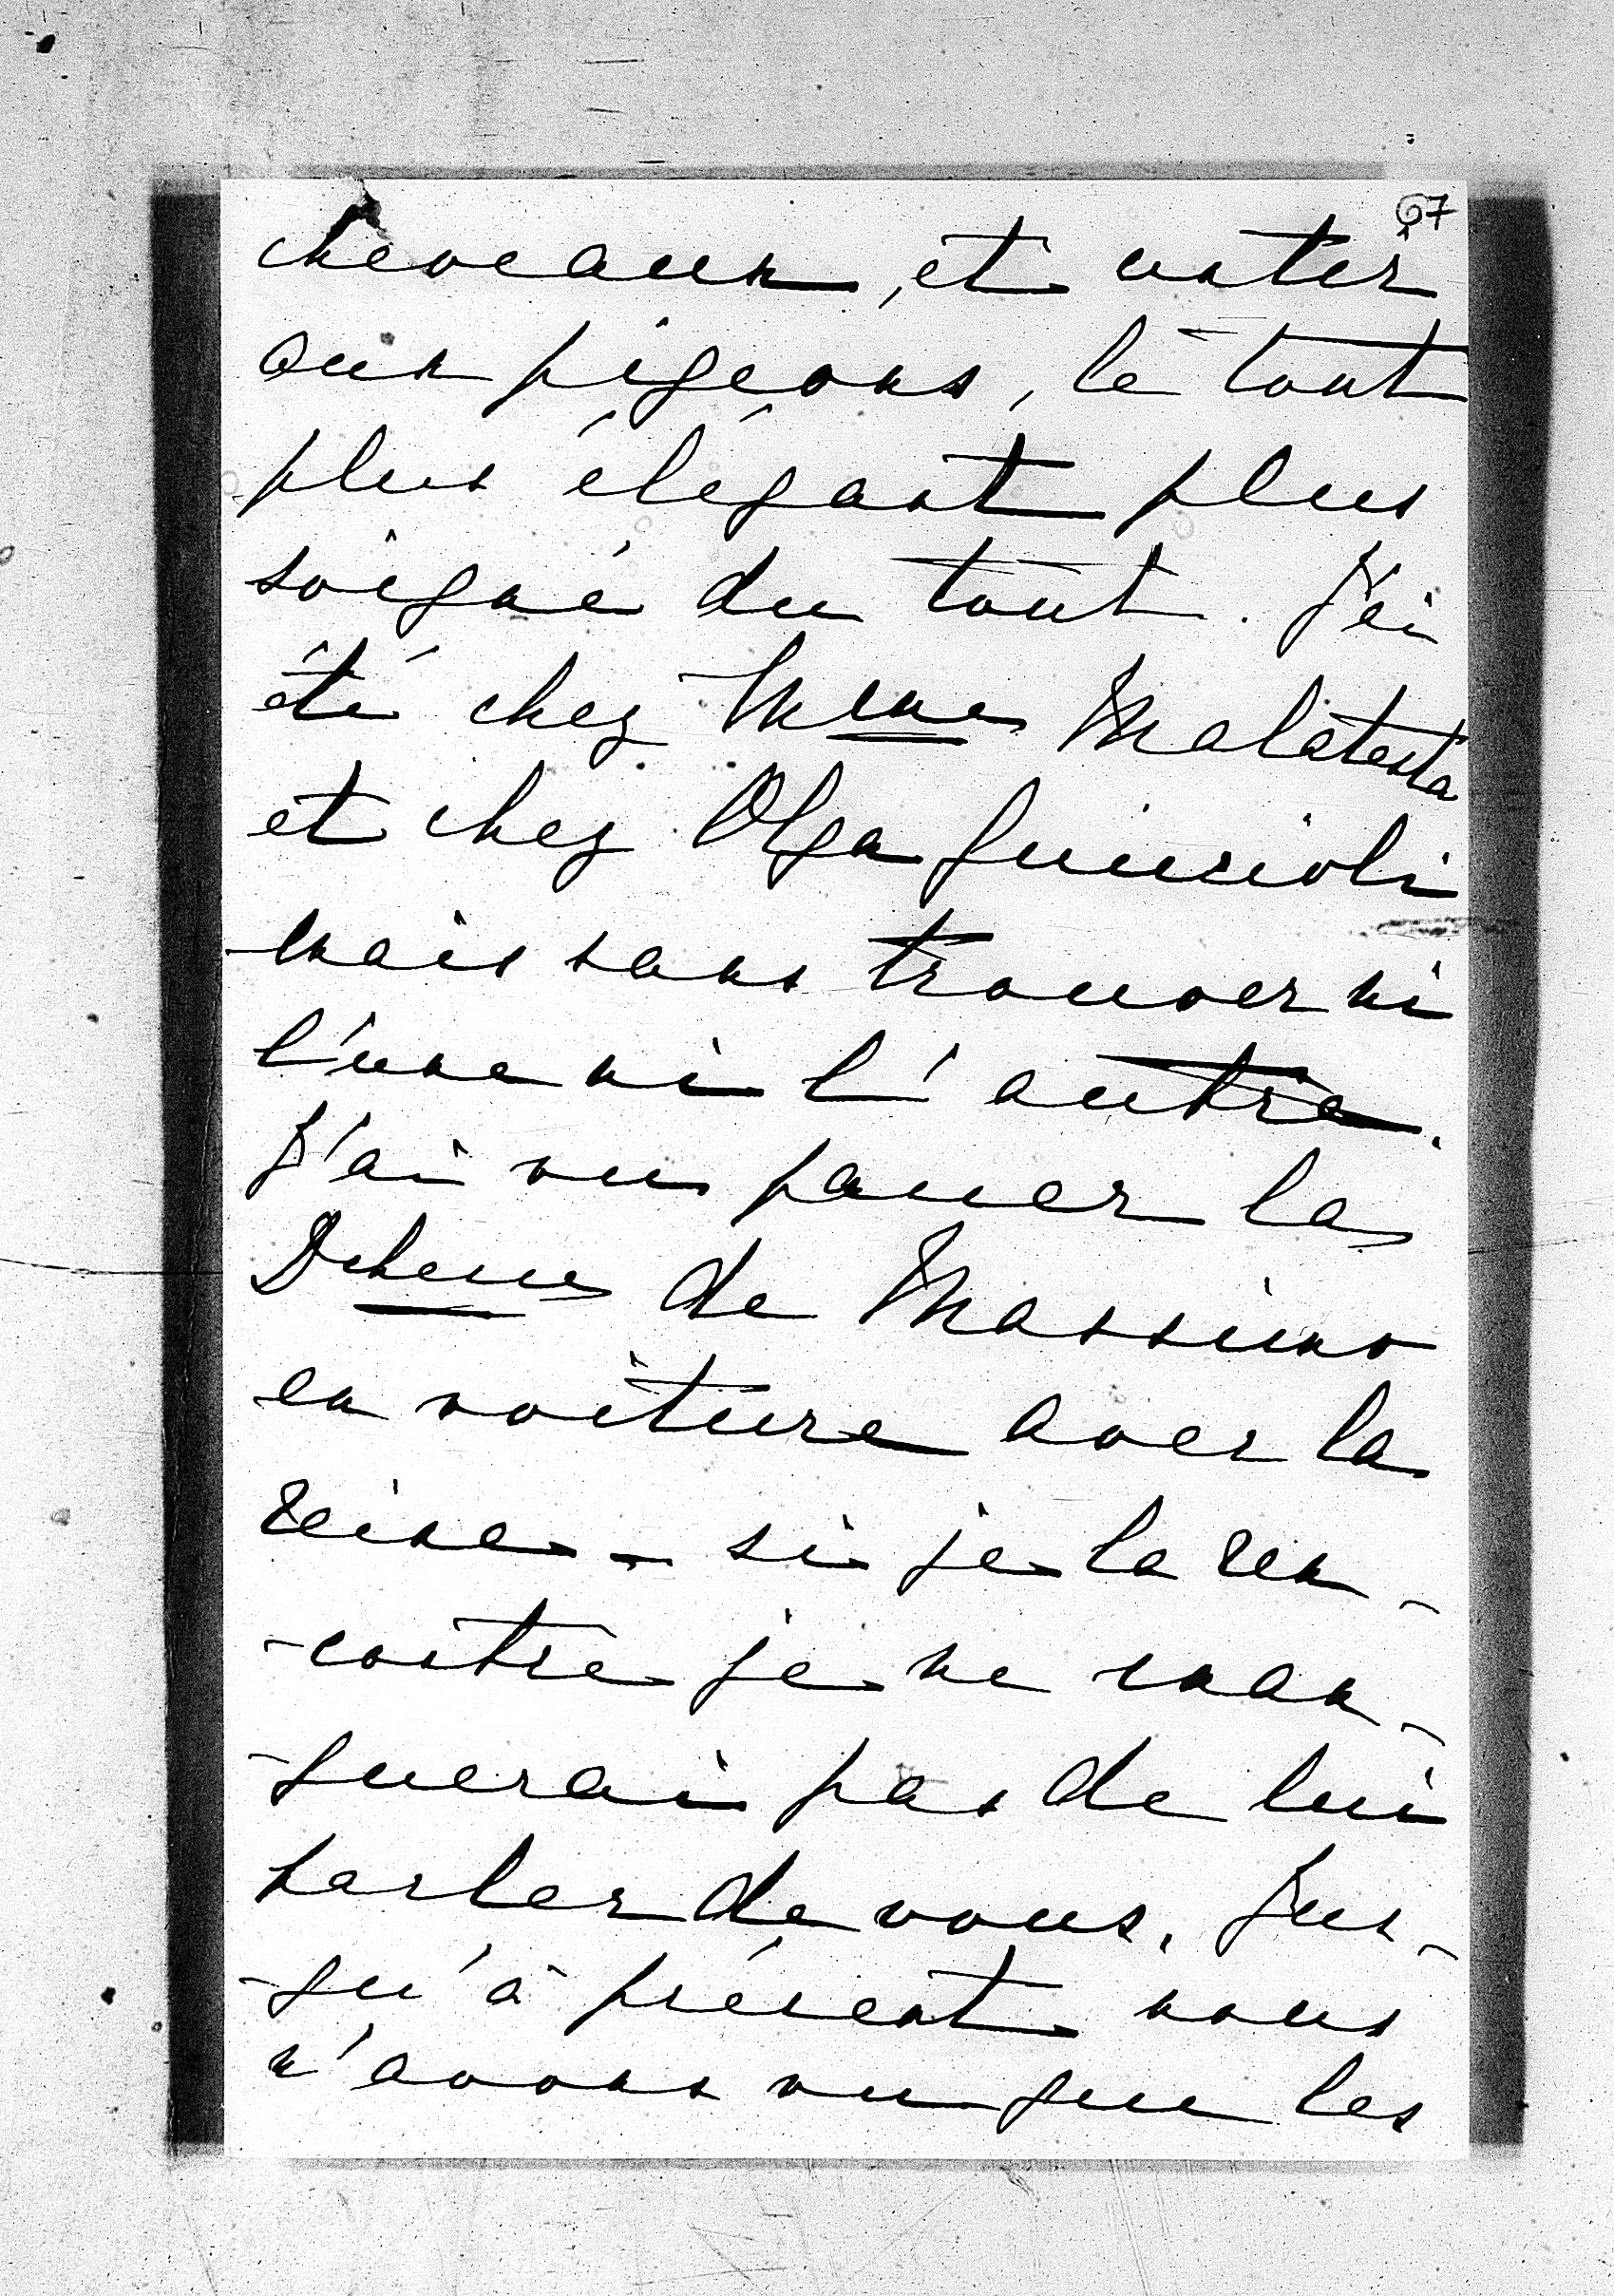 67
cheveaux, et
aux pigeons, le tout
plus élégant plus
soigné du tout. J'ai
été chez Mme Malatesta
et chez Olga
mais sans trouver ni
l'une ni l'autre.
J'ai vu passer la
Dchesse de Massimo
en voiture avec la
reine - si je la ren-
-contre je ne man-
-querai pas de lui
parler de vous. Jus-
-qu'à présent nous
n'avons vu que les